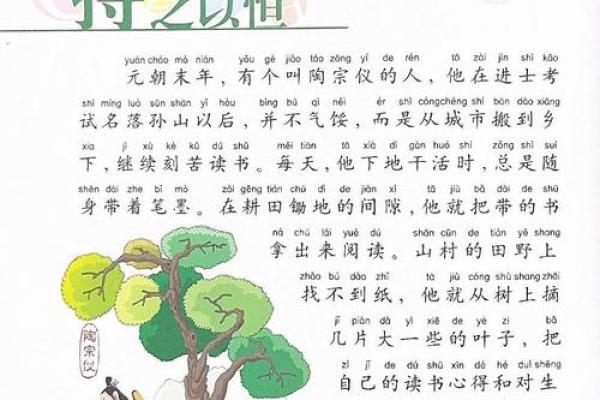 持之以恒
yuán cháo mò nián yǒu gè jiào táo zōng yí de rén tā zài jìn shì kǎo
元朝末年，有个叫陶宗仪的人，他在进士考
shì míng luò sūn shān yǐ hòu bìng bú qì něi ér shì cóngchéng shì bān dào xiāng
试名落孙山以后，并不气馁，而是从城市搬到乡
xià jì xù kè kǔ dú shū měi tiān tā xià dì gàn huó shí zǒng shì suí
下，继续刻苦读书。每天，他下地干活时，总是随
shēn dài zhe bǐ mò zài gēng tián chú dì de jiàn xì tā jiù bǎ dài de shū
身带着笔墨。在耕田锄地的间隙，他就把带的书
ná chū lái yuè dú shān cūn de tián yě shang
拿出来阅读。山村的田野上
zhǎo bú dào zhǐ tā jiù cóng shù shang zhāi
找不到纸，他就从树上摘
jǐ piàn dà yì xiē de yè zi bǎ
几片大一些的叶子，把
zì jǐ de dú shū xīn dé hé duì shēng
自己的读书心得和对生
陶宗仪